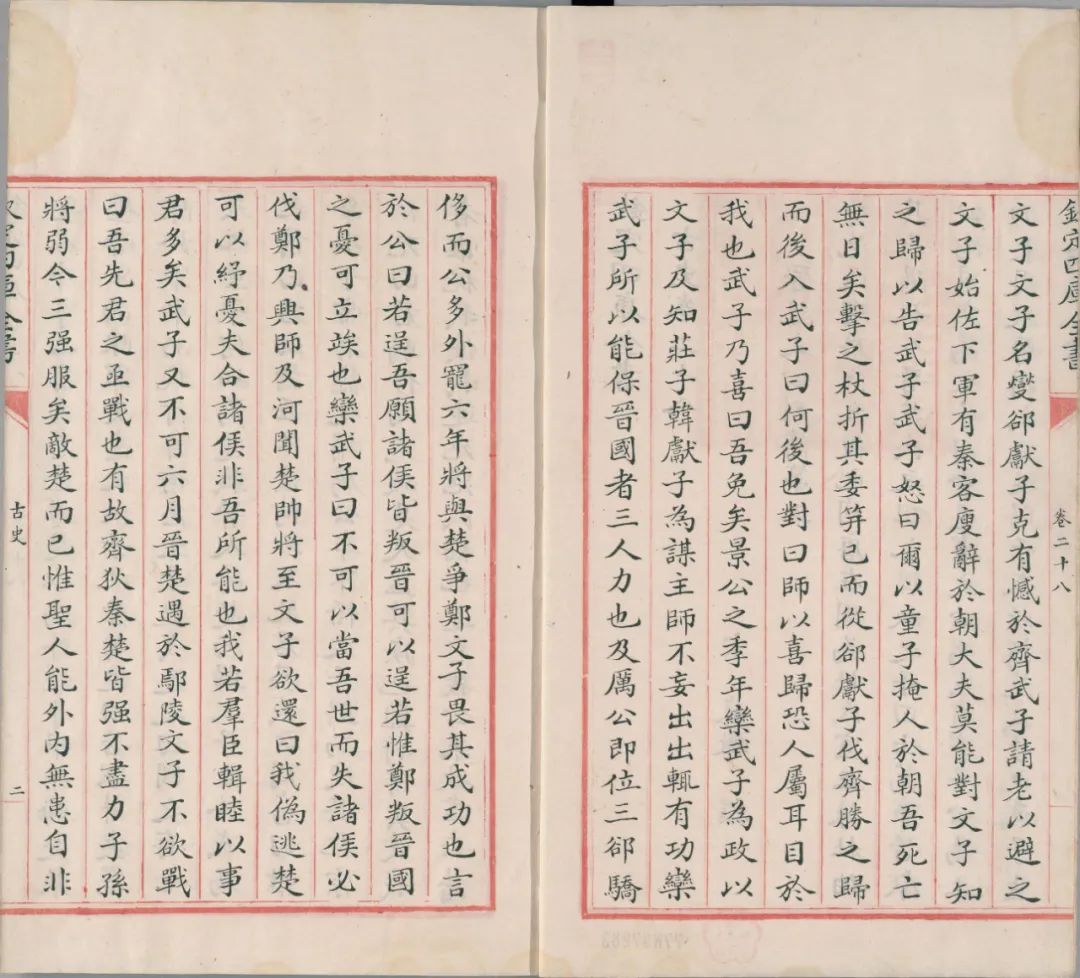 欽定四庫全書
卷二十八
文子文子名燮郤獻子克有憾於齊武子請老以避之
文子始佐下軍有秦客廋辭於朝大夫莫能對文子知
之歸以告武子武子怒曰爾以童子掩人於朝吾死亡
無日矣擊之杖折其委笄已而從郤獻子伐齊勝之歸
而後入武子曰何後也對曰師以喜歸恐人屬耳目於
我也武子乃喜曰吾免矣景公之季年欒武子為政以
文子及知莊子韓獻子為謀主師不妄出出輒有功欒
武子所以能保晉國者三人力也及厲公即位三郤驕
侈而公多外寵六年將與楚爭鄭文子畏其成功也言
於公曰若逞吾願諸侯皆叛晉可以逞若惟鄭叛晉國
之憂可立竢也欒武子曰不可以當吾世而失諸侯必
伐鄭乃興師及河聞楚帥將至文子欲還曰我偽逃楚
可以紓憂夫合諸侯非吾所能也我若羣臣輯睦以事
君多矣武子又不可六月晉楚遇於鄢陵文子不欲戰
曰吾先君之亟戰也有故齊狄秦楚皆强不盡力子孫
將弱今三强服矣敵楚而已惟聖人能外内無患自非
欽定四庫全書
古史
二